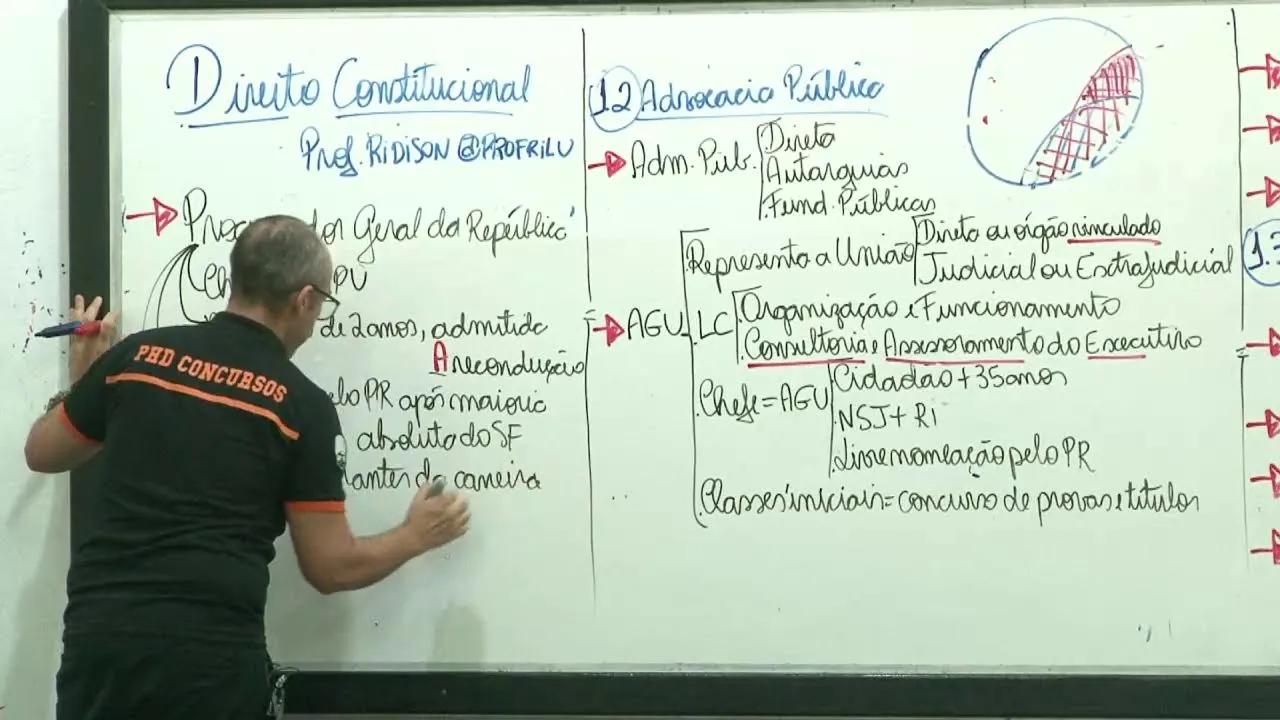 Direito Constitucional
Prof. RIDISON @PROFRILU
Geral da República
de 2 anos, admitida
A recondução
PR após maioria
absoluta do SF
da carreira
PHD CONCURSOS
1.2 Advocacia Pública
Adm. Púb.
Direta
Autarquias
Fund. Públicas
AGU
Representa a União
Direta ou órgão vinculado
Judicial ou Extrajudicial
LC
Organização e Funcionamento
Consultoria e Assessoramento do Executivo
Chefe = AGU
Cidadão + 35 anos
NSJ + RI
Livre nomeação pelo PR
Classes iniciais = concurso de provas e títulos
1.3